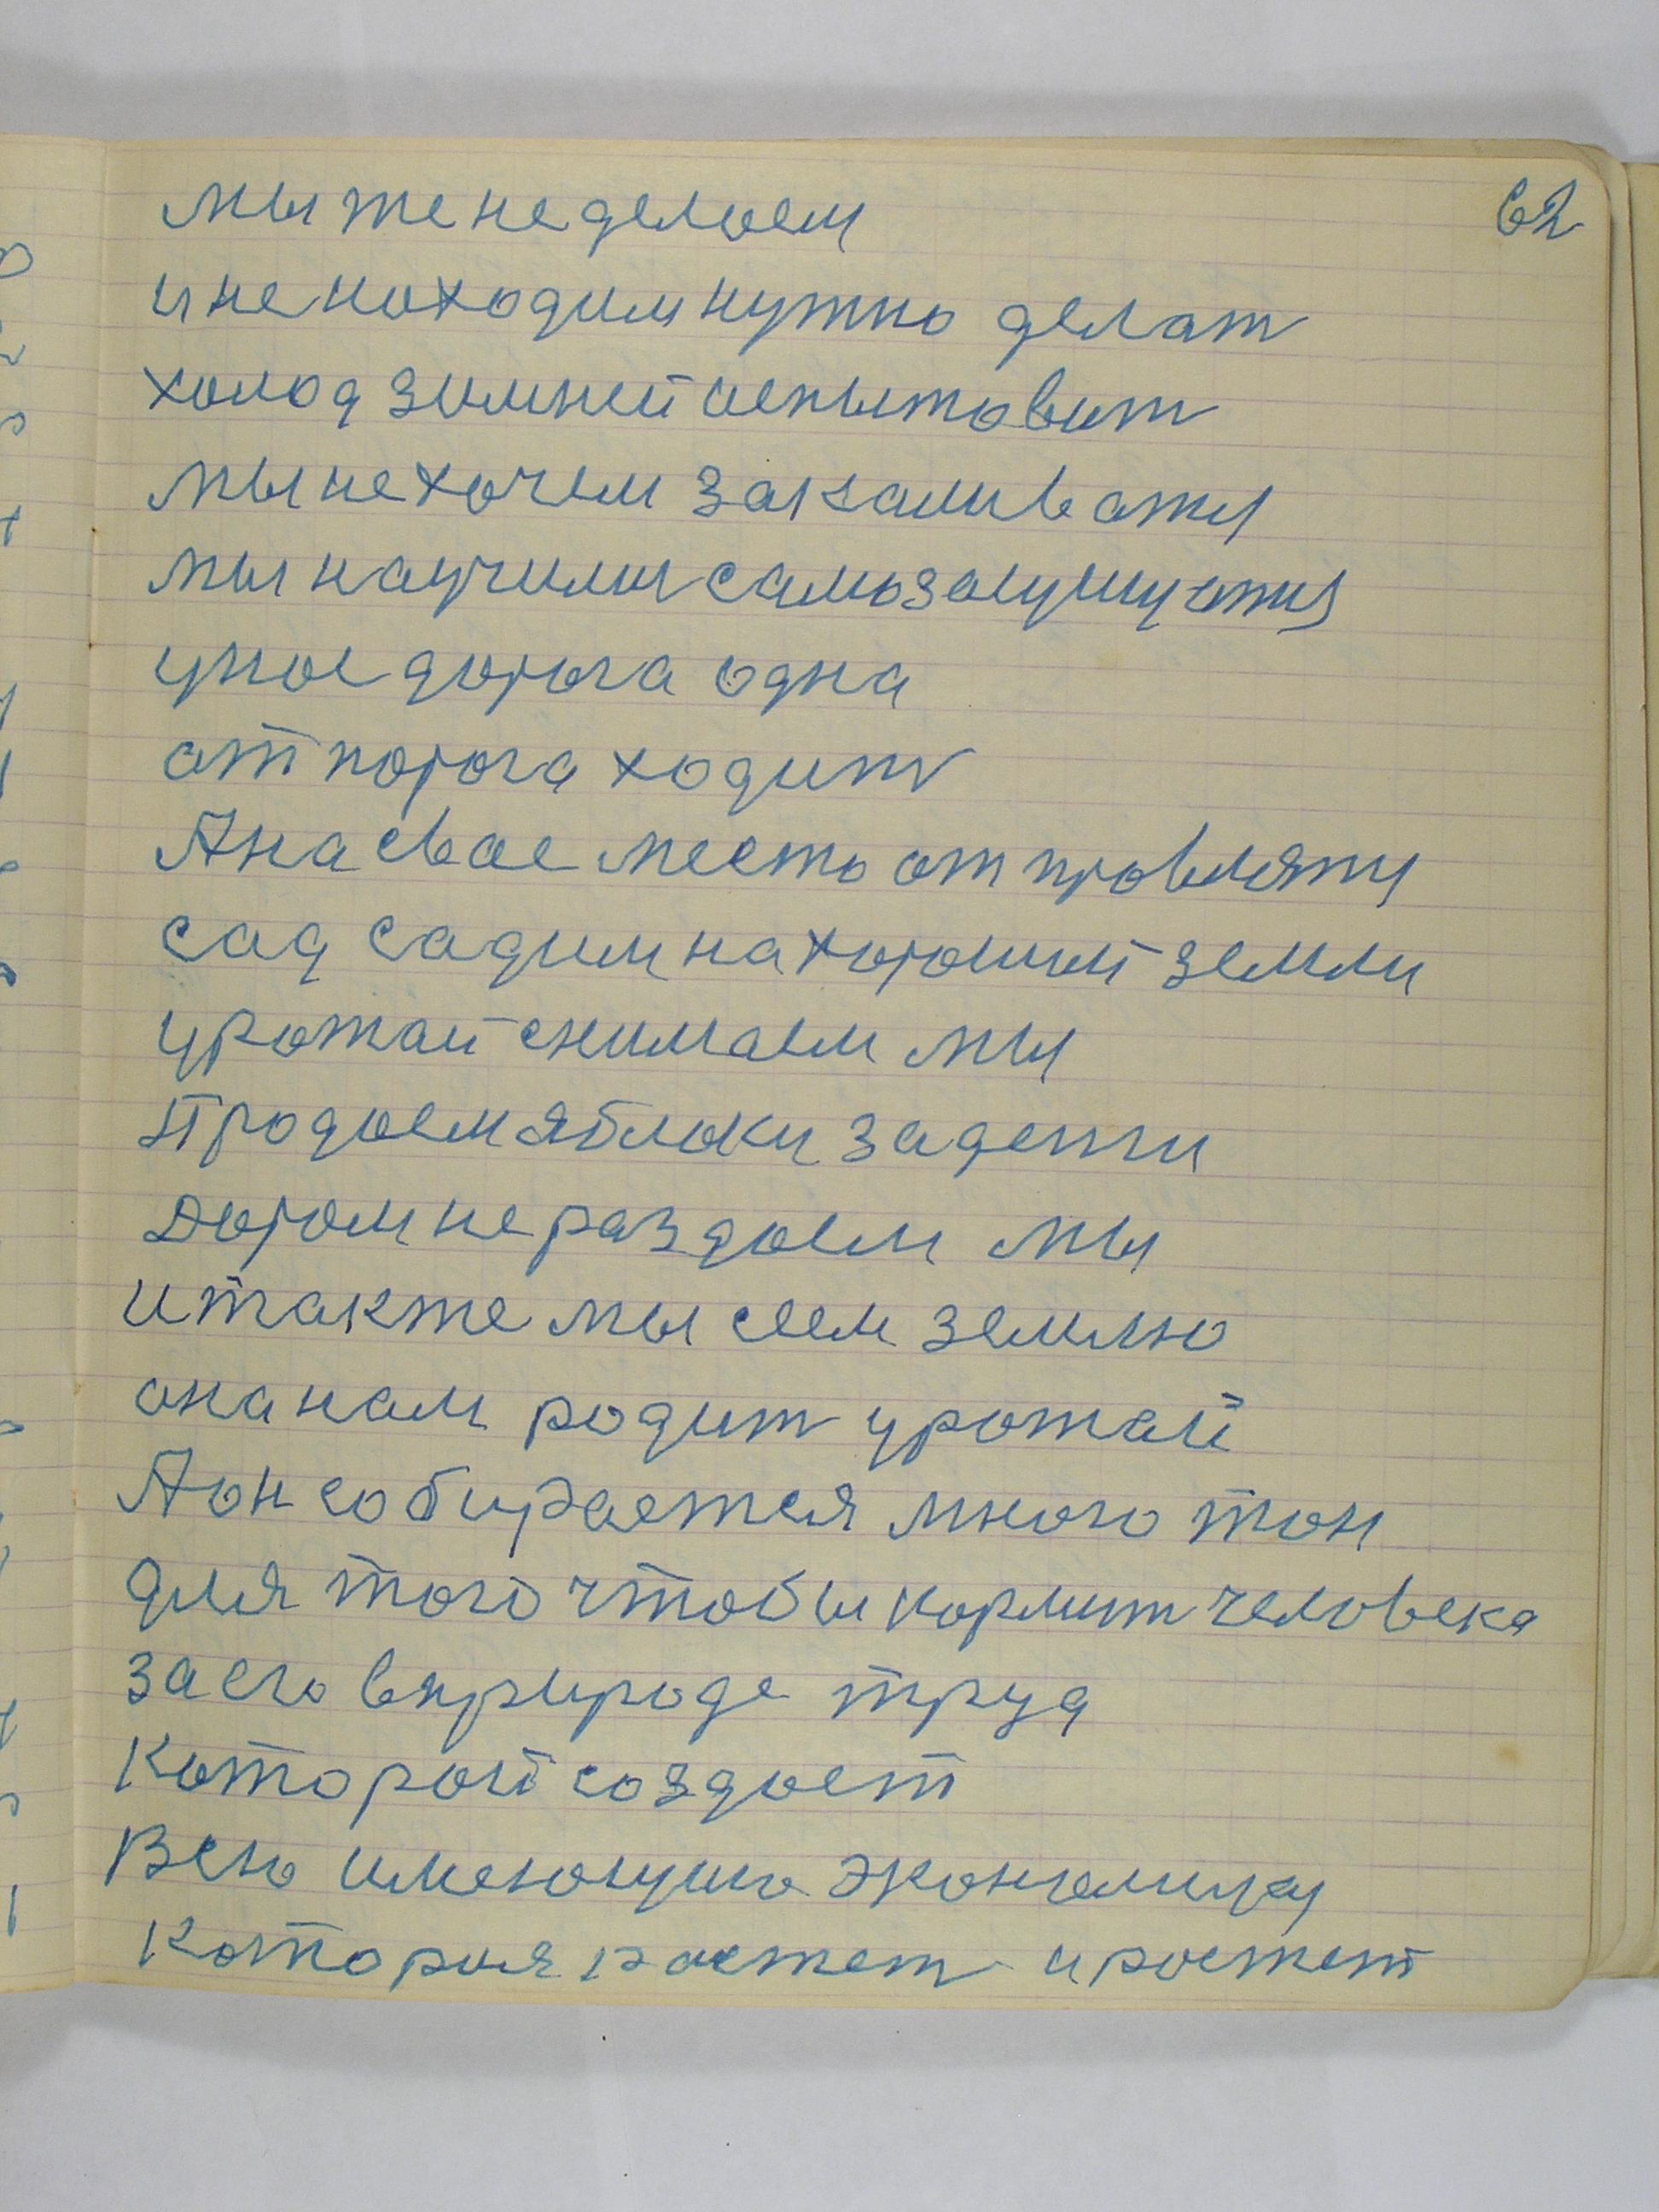 62
мы же не делаем
и не находим нужно делат
холод зимней испытовит
мы не хочем закаливатя
мы научили самозащищатя
у нас дорога одна
от порога ходит
А на свае место отправлятя
сад садим на хороший земли
урожай снимаем мы
Продаем яблоки за денги
Даром не раздаем мы
и также мы сеем землю
она нам родит урожай
А он собирается много тон
для того чтобы кормит человека
за его в природе труд
Которой создает
Всю имеющию экономику
Которыя растет и растет